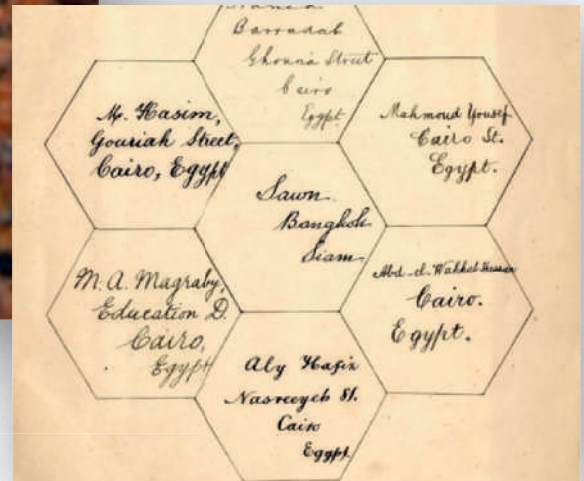 Barradab
Street
Cairo
Egypt
M. Hasim,
Gouriah Street,
Cairo, Egypt
Mahmoud Yousef
Cairo St.
Egypt.
Sawn
Bangkok
Siam
M. A. Magraby,
Education D.
Cairo,
Egypt
Abd-el-Wahhab Hassan
Cairo.
Egypt.
Aly Hafiz
Nasreeyeh St.
Cairo
Egypt